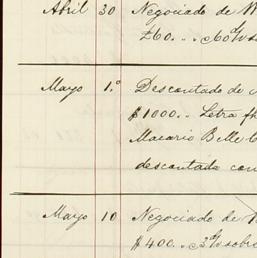 Abril 30 Negociado de W
£60.. c/60 d/v
Mayo 1.º Descontado de
$1000.. Letra
Macario Belle
descontada con
Mayo 10 Negociado de W
$400.. 3 d/v sobre